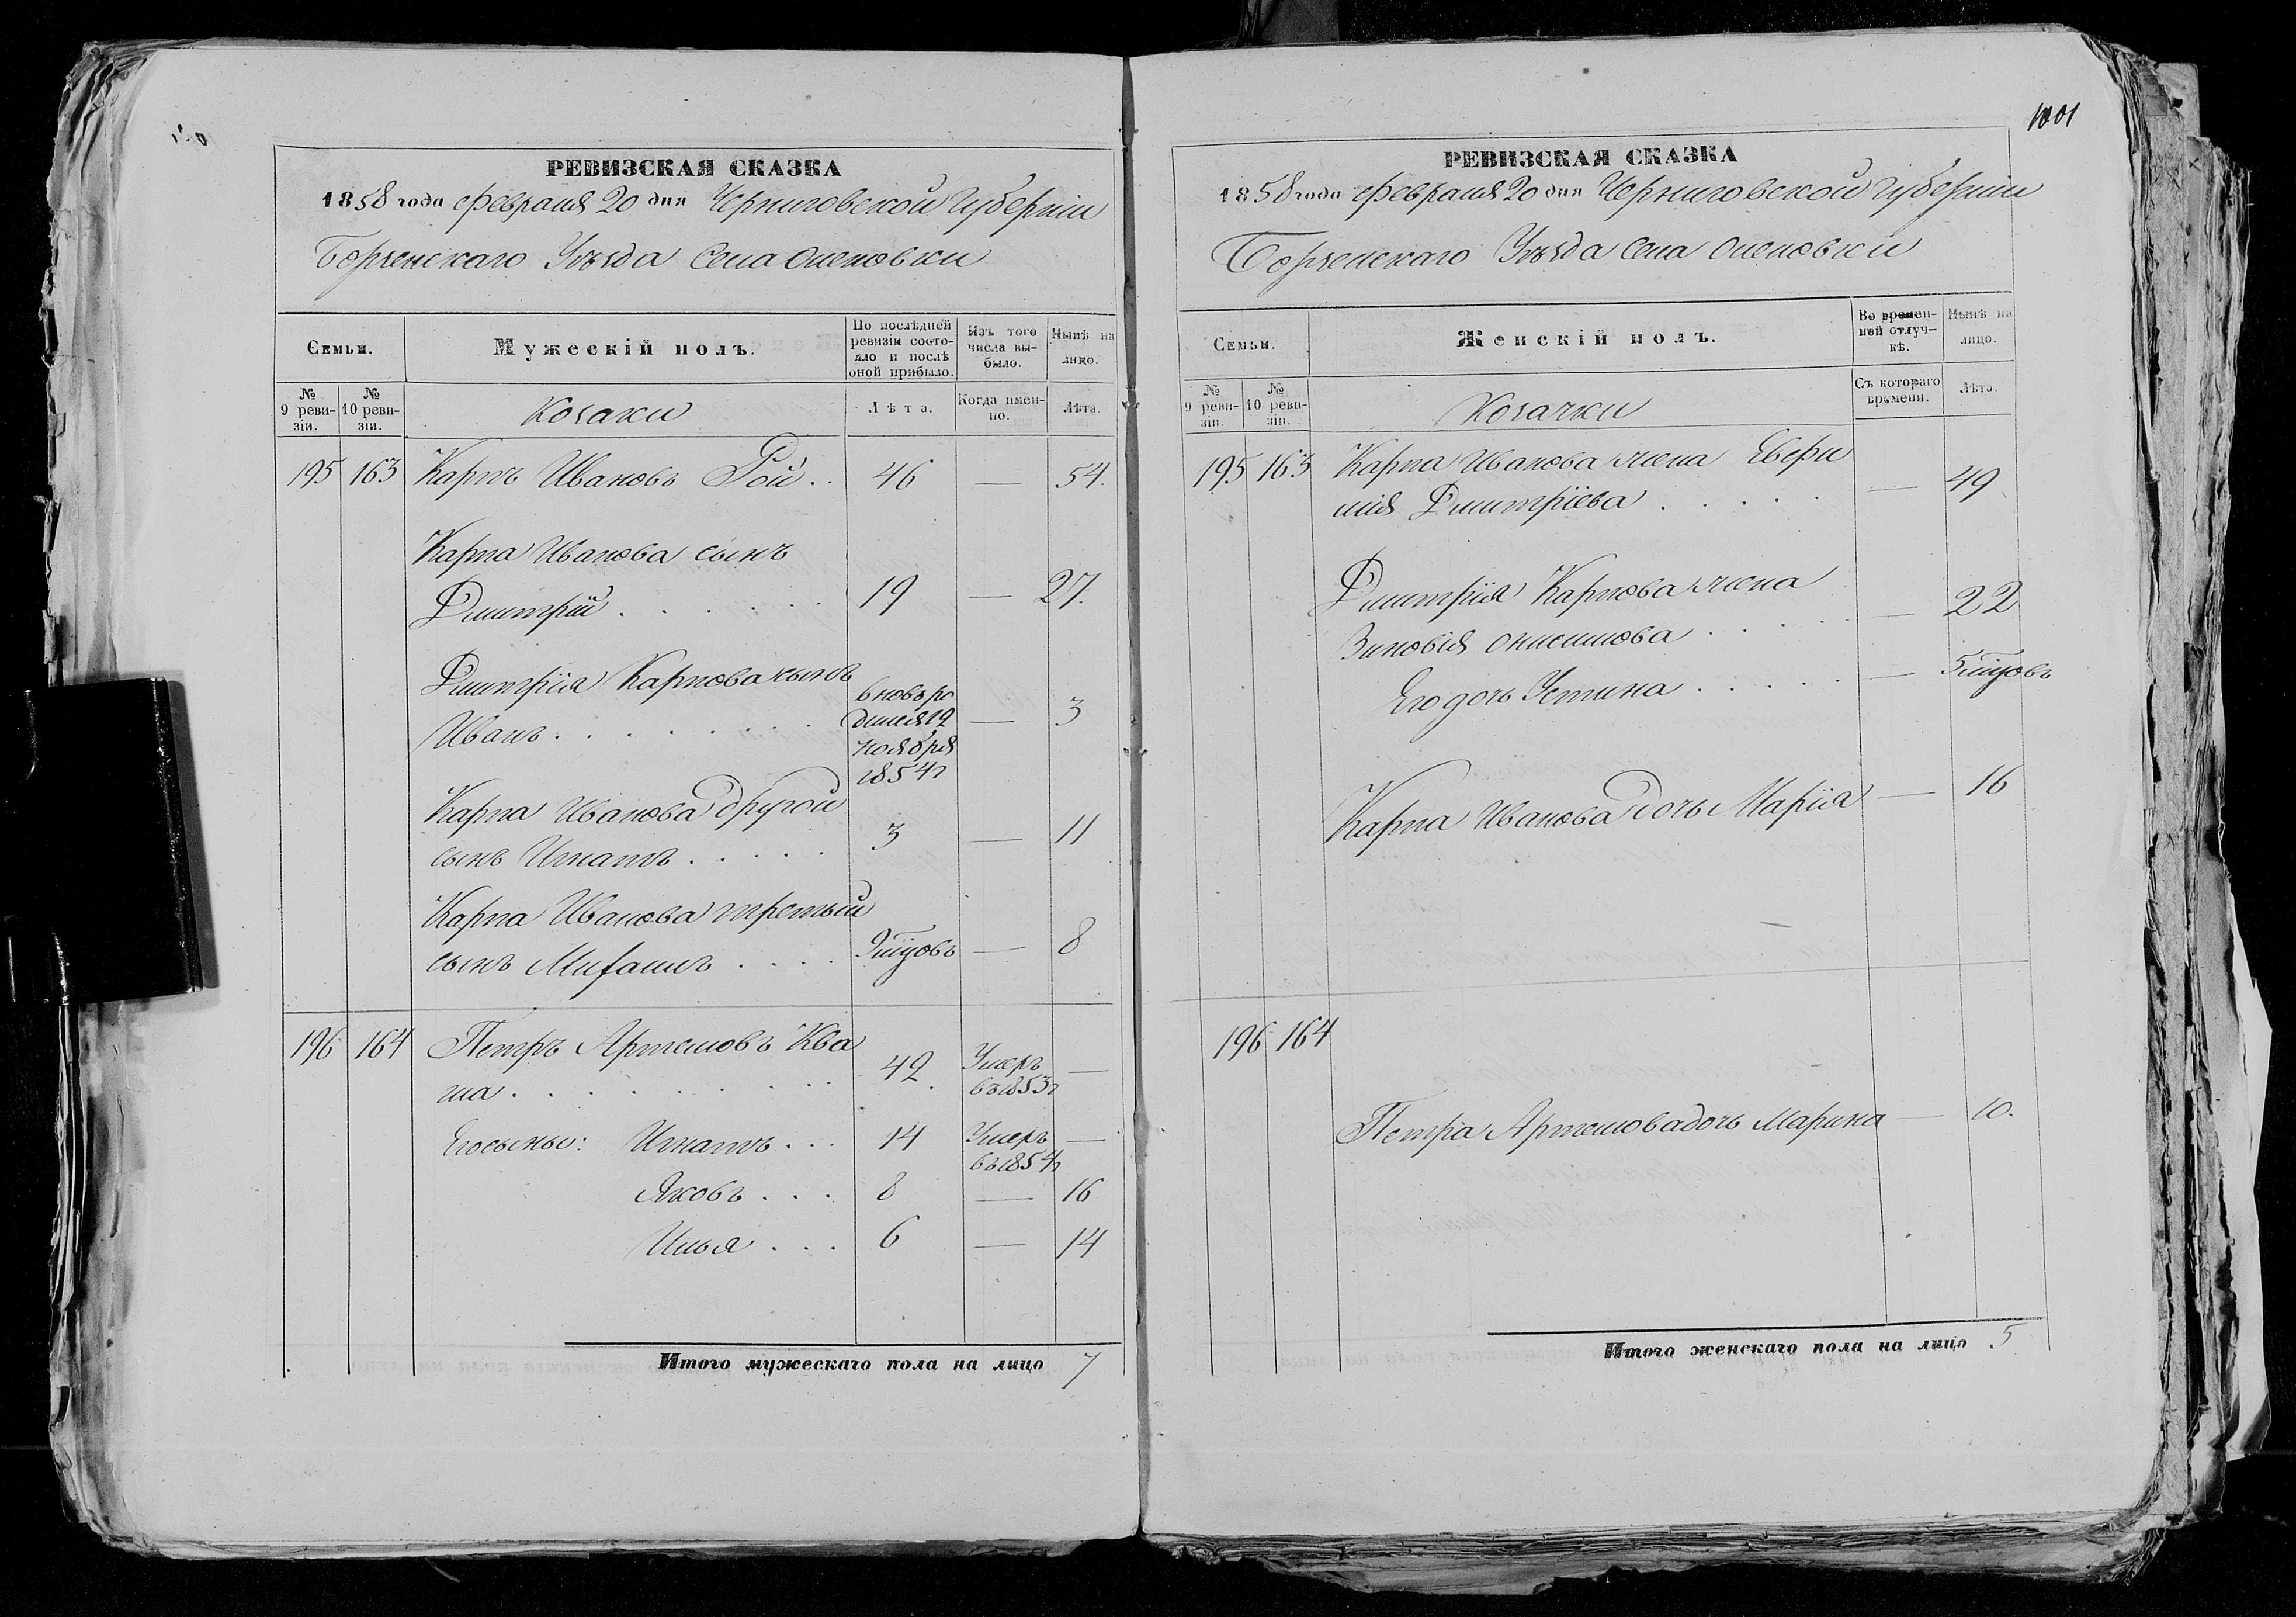 РЕВИЗСКАЯ СКАЗКА
1858 года Февраля 20 дня Черниговской Губерніи
Борзенскаго Уѣзда Села Оленовки
Семьи.
Мужескій полъ.
По послѣдней ревизіи состояло и послѣ оной прибыло.
Изъ того числа выбыло.
Нынѣ на лицо.
№ 9 ревизіи.
№ 10 ревизіи.
Козаки
Лѣта.
Когда именно.
Лѣта.
195 163 Карпъ Ивановъ Рой . . 46 — 54.
Карпа Иванова сынъ
Дмитрій . . . . . . 19 — 27.
Дмитрія Карпова сынъ
Иванъ . . . . . . . вновь ро
дился 12 — 3
ноября
1854 г
Карпа Иванова другой
сынъ Игнатъ . . . . . 3 — 11
Карпа Иванова третый
сынъ Михаилъ . . . . — 8
196 164 Петръ Артемовъ Ква
ша . . . . . . . . 42. Умеръ въ 1853 г —
Его сыны: Игнатъ . . . 14 Умеръ въ 1854 г —
Яковъ . . . 8 — 16
Илья . . . 6 — 14
Итого мужескаго пола на лицо 7
1001
РЕВИЗСКАЯ СКАЗКА
1858 года Февраля 20 дня Черниговской Губерніи
Борзенскаго Уѣзда Села Оленовки
Семьи.
Женскій полъ.
Во временной отлучкѣ.
Нынѣ на лицо.
№ 9 ревизіи.
№ 10 ревизіи.
Козачки
Съ котораго времени.
Лѣта.
195 163 Карпа Иванова жена Евфи
мія Дмитріева . . . . . — 49
Дмитрія Карпова жена
Зиновія Онисимова . . . . . — 22
Его дочь Устина . . . . . —
Карпа Иванова дочь Марія — 16
196 164
Петра Артемова дочь Марина — 10.
Итого женскаго пола на лицо 5